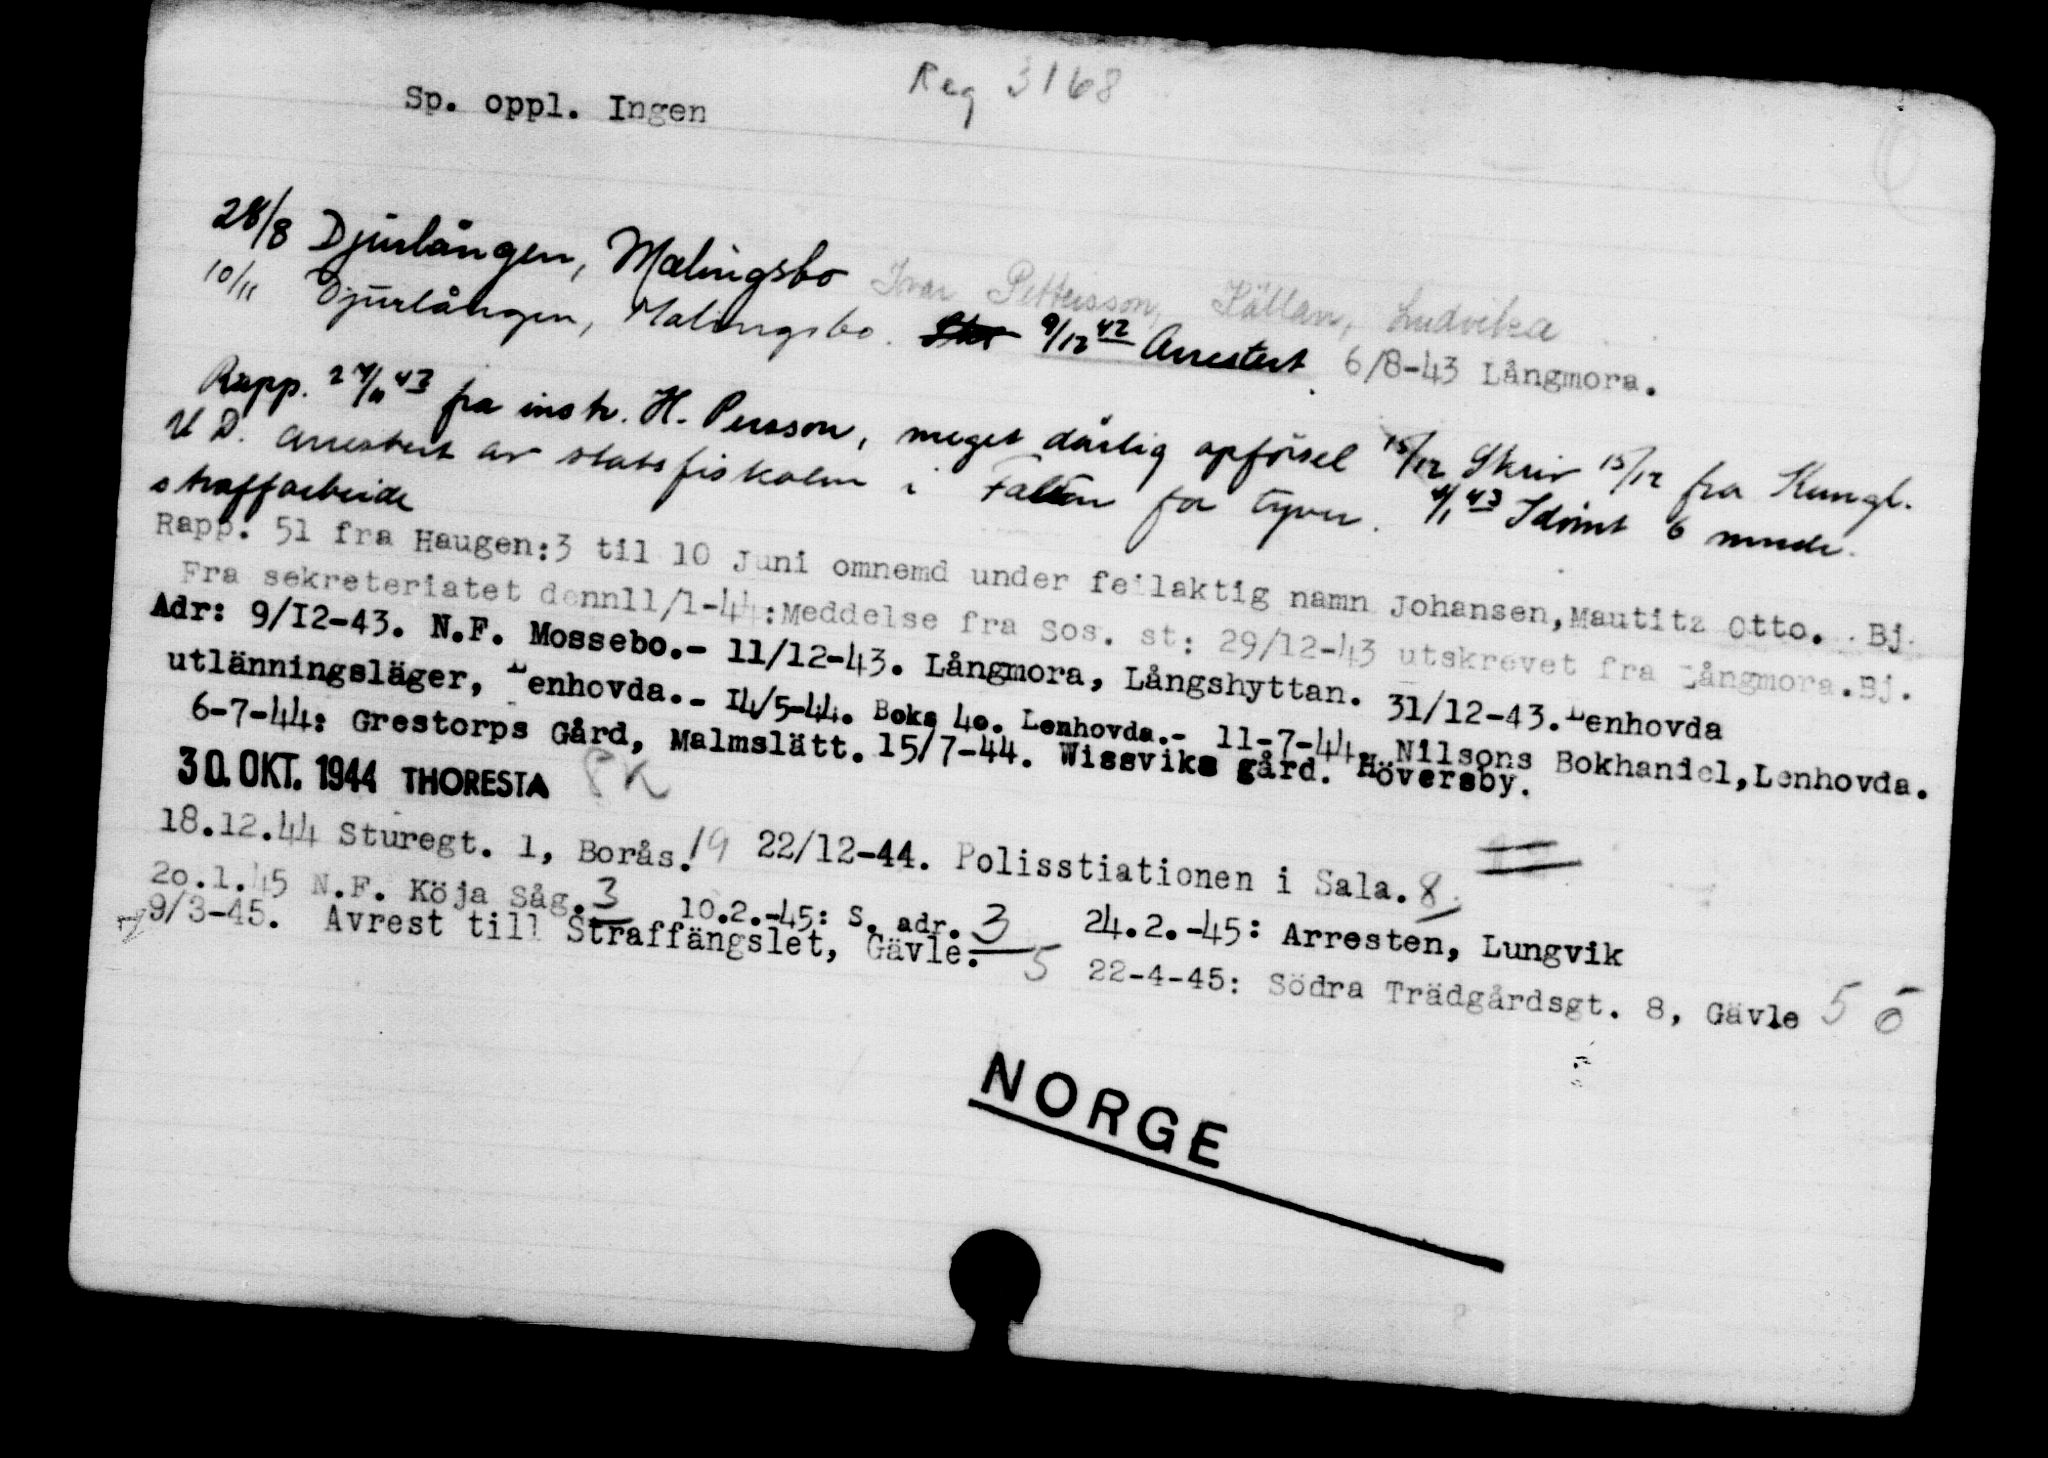 Reg 3168
Sp. oppl. Ingen
28/8 Djurlången, Malingsbo Ivar Pettersson, Källan, Ludvika
10/11 Djurlången, Malingsbo. 9/12 42 Arrestert 6/8-43 Långmora.
Rapp. 43 fra instr. H. Persson, meget dårlig opførsel 15/12 Skriv 15/12 fra Kungl.
U D. arrestert av statsfiskalen i Falun for tyveri. 4/1 43 Idømt 6 mndr.
straffarbeide
Rapp. 51 fra Haugen:3 til 10 Juni omnemd under feilaktig namn Johansen,Mautitz Otto. Bj.
Fra sekreteriatet dennll/1-44:Meddelse fra Sos. st: 29/12-43 utskrevet fra Långmora.Bj.
Adr: 9/I2-43. N.F. Mossebo.- 11/12-43. Långmora, Långshyttan. 31/12-43. Lenhovda
utlänningsläger, Lenhovda.- I4/5-44. Boks 4o. Lenhovda.- 11-7-44. Nilsons Bokhandel,Lenhovda.
6-7-44: Grestorps Gård, Malmslätt. 15/7-44. Wissviks gård. Höversby.
30. OKT. 1944 THORESTA PK
18.12.44 Sturegt. 1, Borås. 19 22/12-44. Polisstiationen i Sala. 8
2o.1.45 N.F. Köja Såg. 3 10.2.-45: S. adr. 3 24.2.-45: Arresten, Lungvik
9/3-45. Avrest till Straffängslet, Gävle. 5 22-4-45: Södra Trädgårdsgt. 8, Gävle 5
NORGE